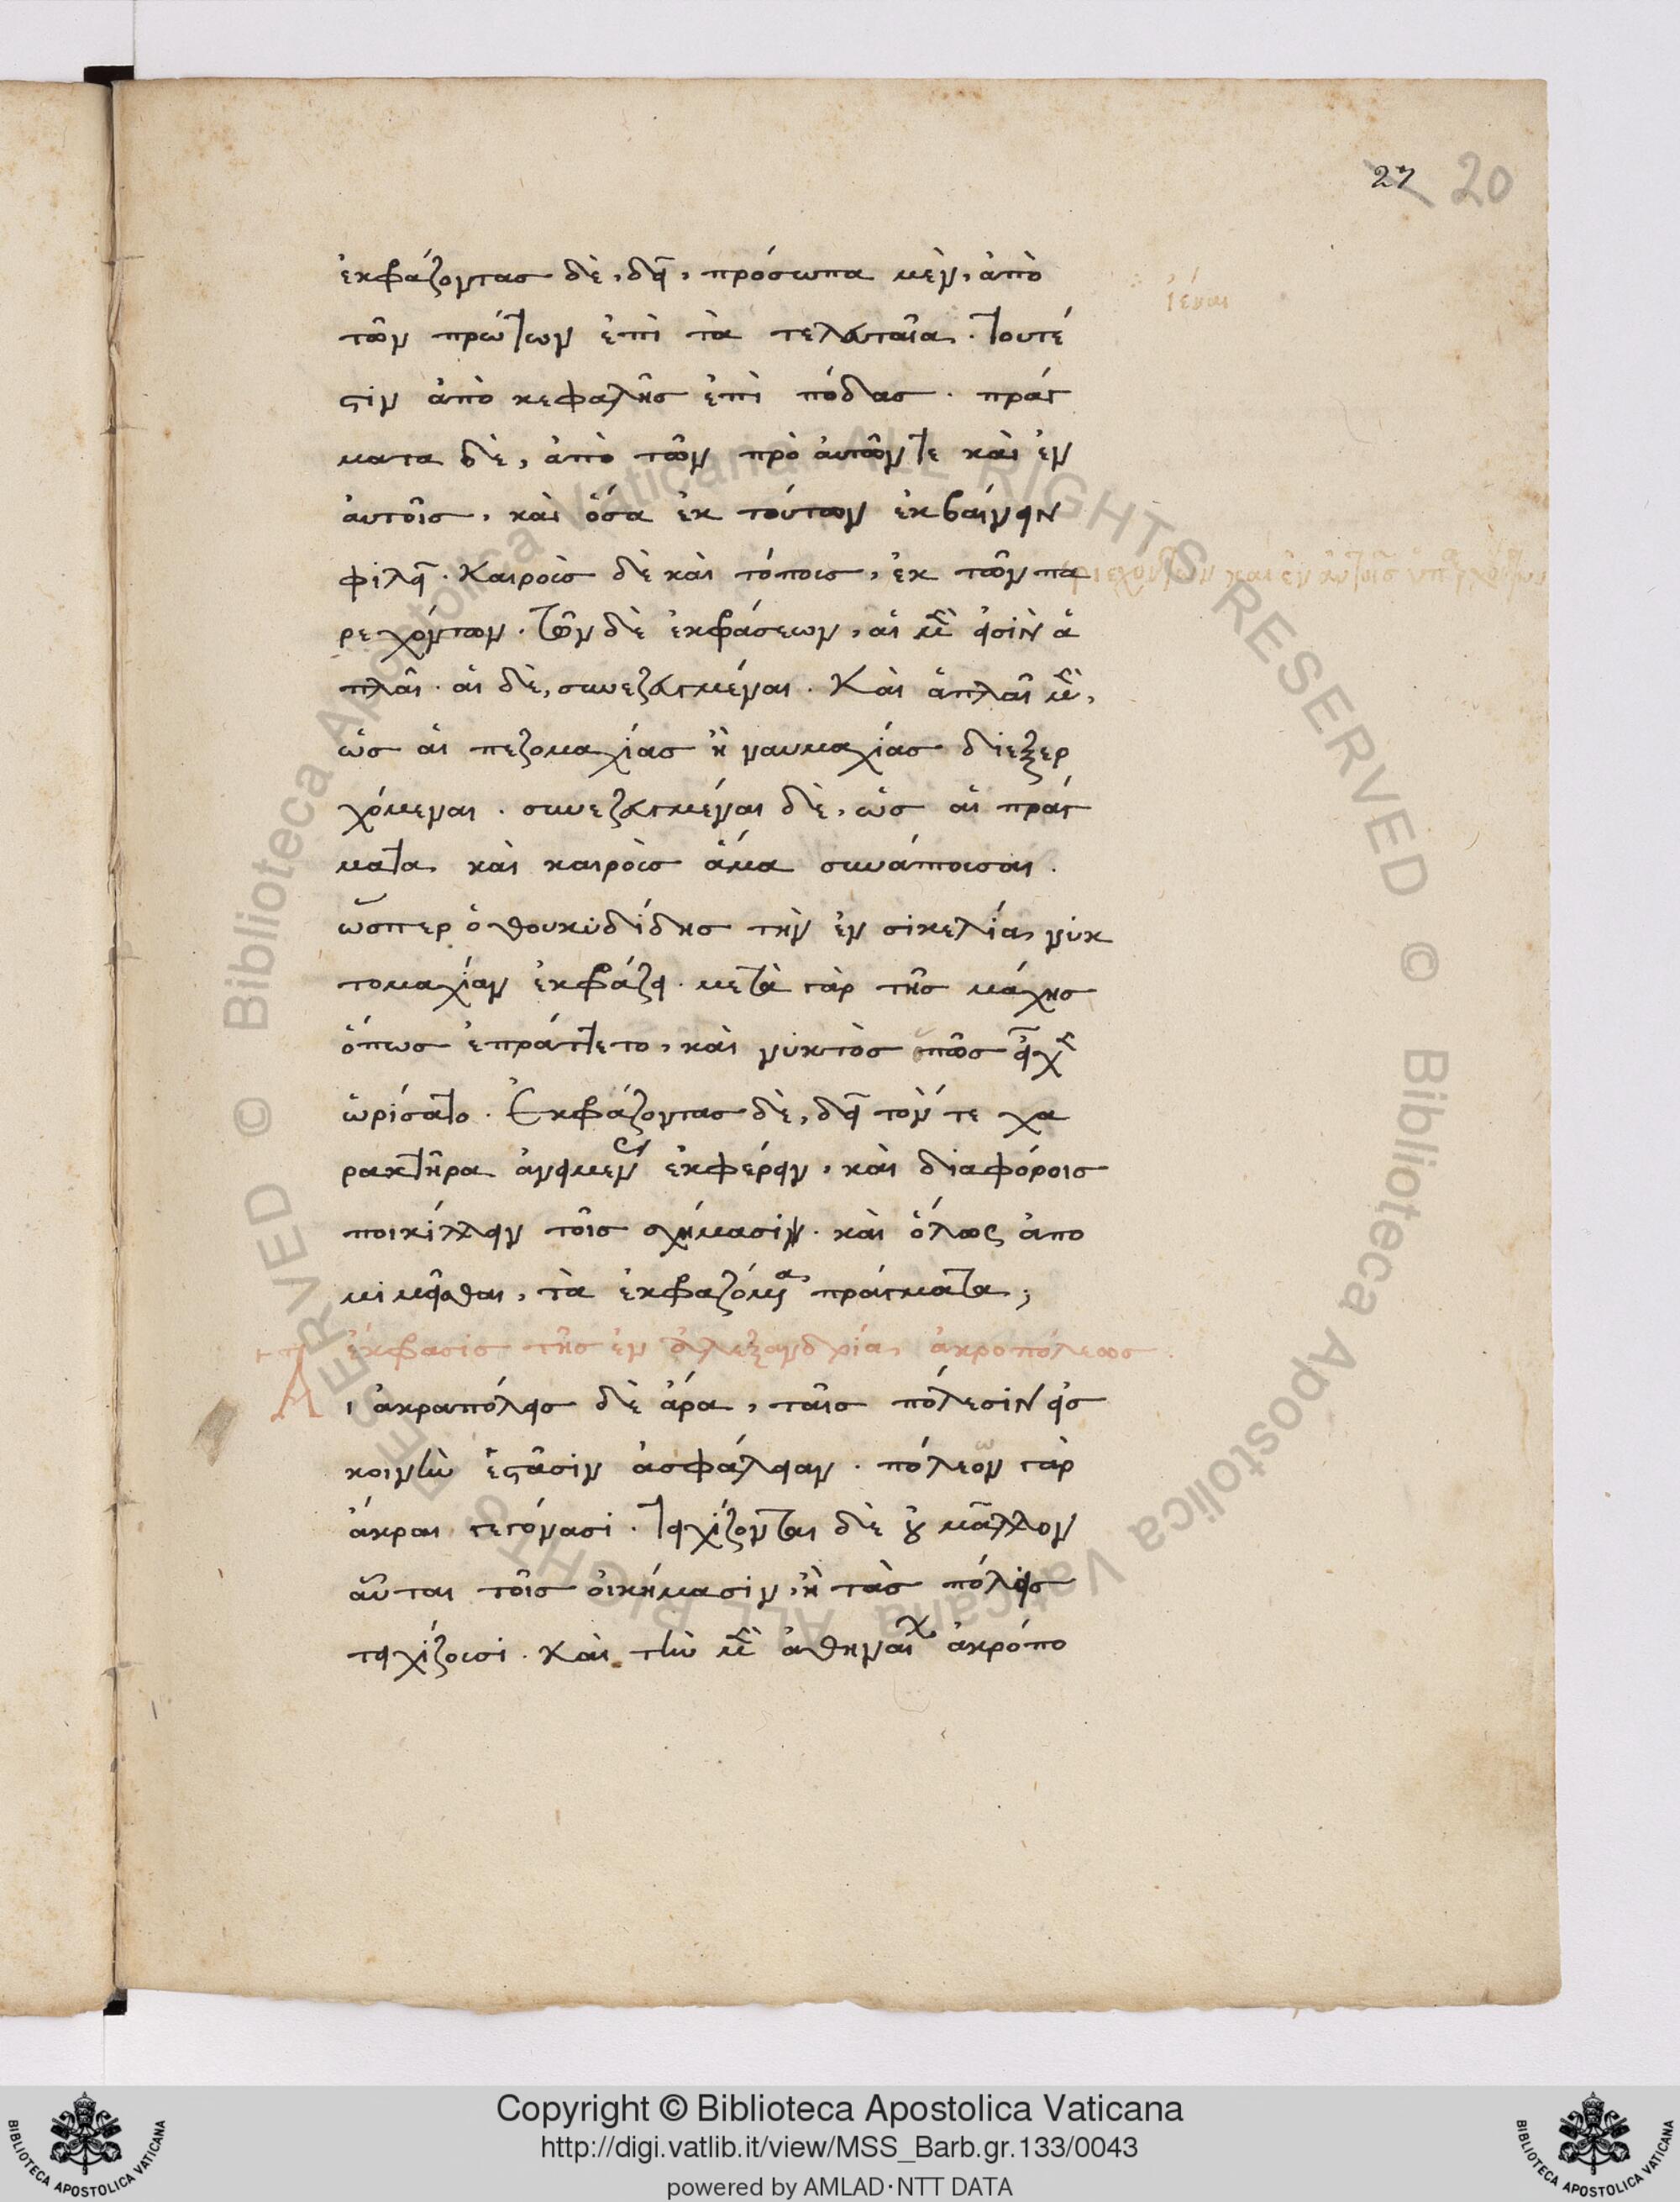 27 20
ἐκφράζοντας δὲ, δεῖ, πρόσωπα μὲν, ἀπὸ
ἰέναι
τῶν πρώτων ἐπὶ τὰ τελευταῖα. τουτέ
στιν ἀπὸ κεφαλῆς ἐπὶ πόδας. πράγ
ματα δὲ, ἀπὸ τῶν πρὸ αὐτῶν τε καὶ ἐν
αὐτοῖς, καὶ ὅσα ἐκ τούτων ἐκβαίνειν
φιλεῖ. Καιροὺς δὲ καὶ τόπους, ἐκ τῶν πα
ριεχόντων καὶ ἐν αὐτοῖς ὑπαρχόντων
ρεχόντων. Τῶν δὲ ἐκφράσεων, αἱ μὲν εἰσὶν ἁ
πλαῖ. αἱ δὲ, συνεζευγμέναι. Καὶ ἁπλαῖ μὲν,
ὡς αἱ πεζομαχίας ἢ ναυμαχίας διεξερ
χόμεναι. συνεζευγμέναι δὲ, ὡς αἱ πράγ
ματα καὶ καιροὺς ἅμα συνάπτουσαι.
ὥσπερ ὁ θουκυδίδης τὴν ἐν σικελία νυκ
τομαχίαν ἐκφράζει. μετὰ γὰρ τῆς μάχης
ὅπως ἐπράττετο, καὶ νυκτὸς πῶς εἶχε
ὡρίσατο. Ἐκφράζοντας δὲ, δεῖ τόν τε χα
ρακτῆρα ἀνειμένον ἐκφέρειν, καὶ διαφόροις
ποικίλλειν τοῖς σχήμασιν. καὶ ὅλως ἀπο
μιμεῖσθαι, τὰ ἐκφραζόμενα πράγματα;
ἔκφρασις τῆς ἐν ἀλεξανδρία ἀκροπόλεως.
Αἱ ἀκραπόλεις δὲ ἄρα, ταῖς πόλεσιν εἰς
κοινὴν ἑστᾶσιν ἀσφάλειαν. πόλεων γὰρ
ἄκραι γεγόνασι. τειχίζονται δὲ οὐ μᾶλλον
αὗται τοῖς οἰκήμασιν, ἢ τὰς πόλεις
τειχίζουσι. Καὶ τὴν μὲν ἀθηναίων ἀκρόπο
Copyright © Biblioteca Apostolica Vaticana
http://digi.vatlib.it/view/MSS_Barb.gr.133/0043
powered by AMLAD·NTT DATA